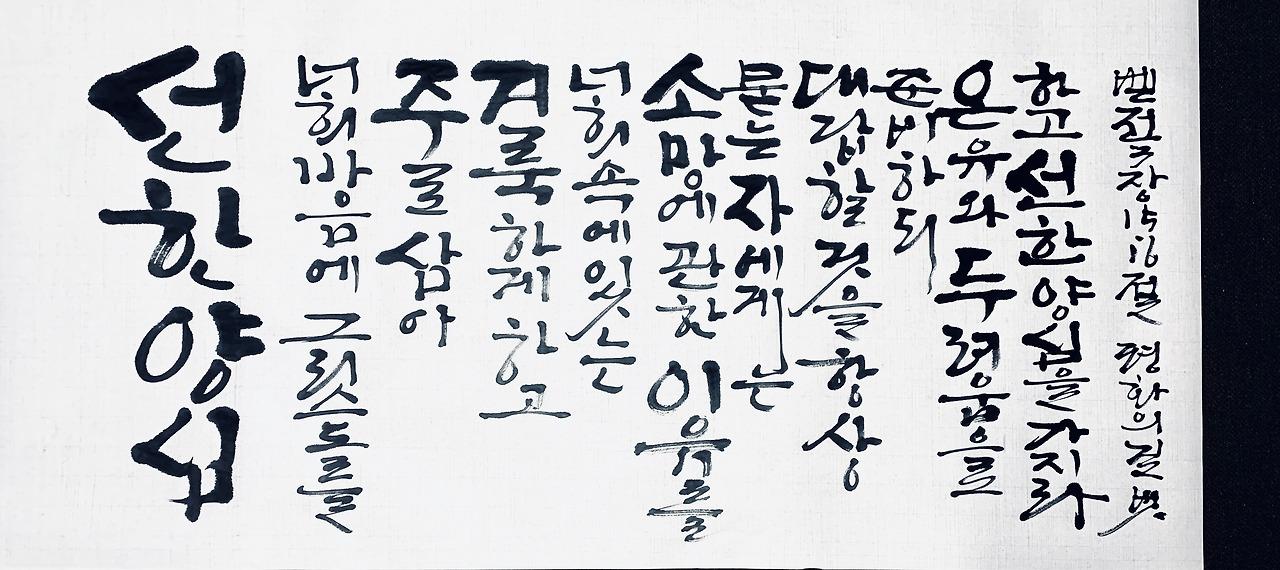 선한양심
너희마음에 그리스도를
주로삼아
거룩하게하고
너희속에있는
소망에관한이유를
묻는자에게는
대답할것을항상
준비하되
온유와두려움으로
하고선한양심을가지라
벧전3장15,16절 평화의길벗